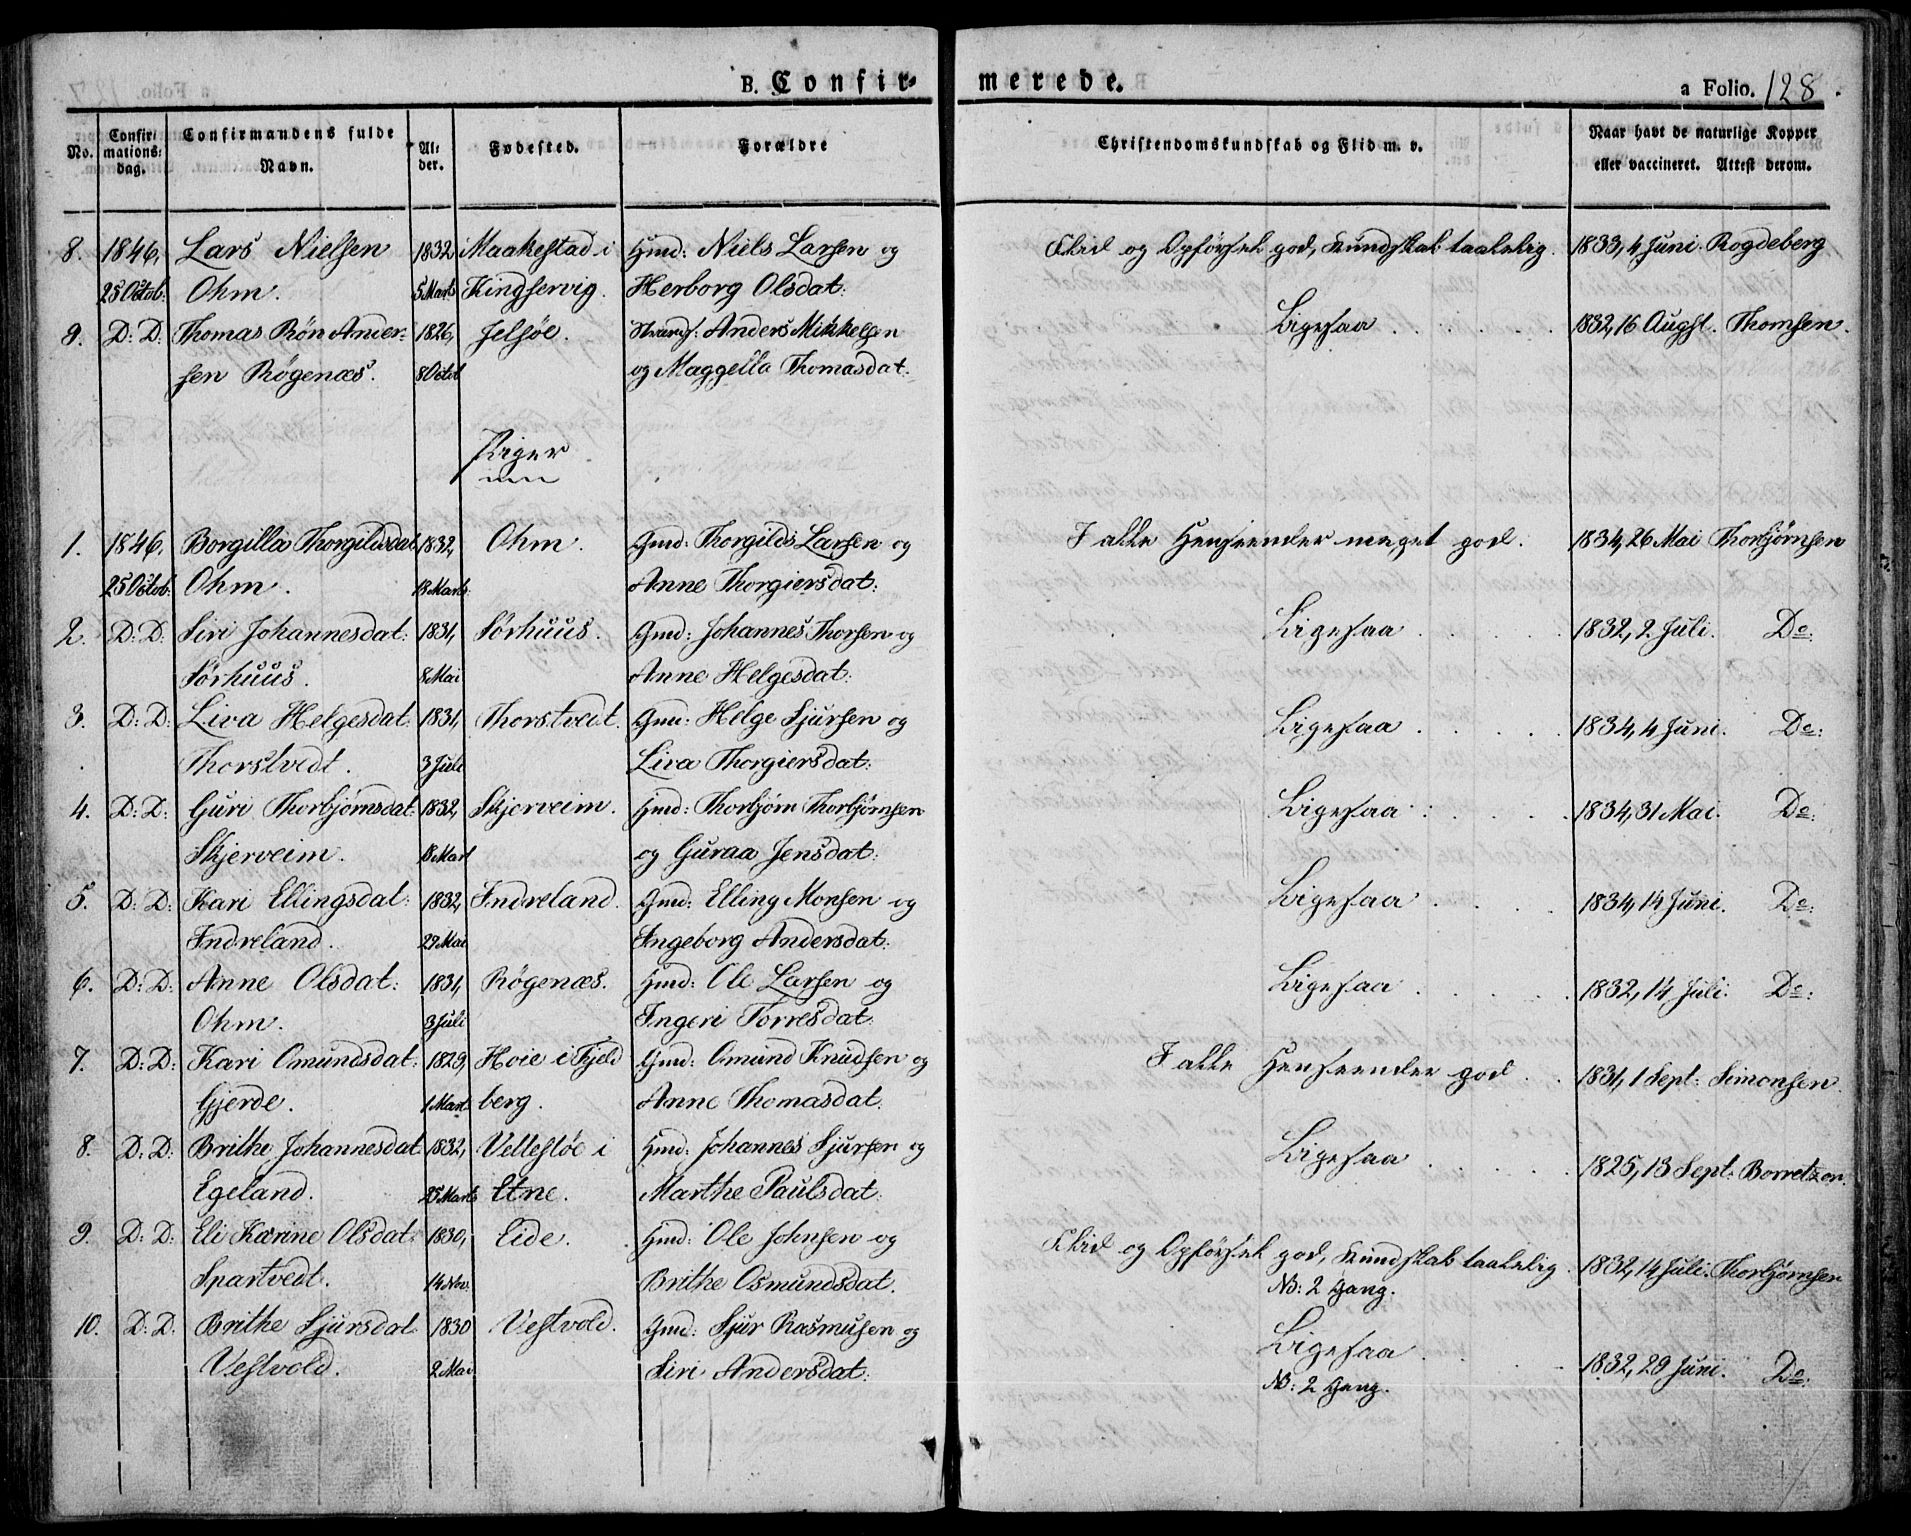 B. Confirmerede.
a Folio. 128.
No. Confirmations-dag. Confirmandens fulde Navn. Alder. Fødested. Forældre Christendomskundskab og Flid m. v. Naar havt de naturlige Kopper eller vaccineret. Attest derom.
8. 1846, Lars Nielsen 1832 Maakestad i Hmd: Niels Larsen og Flid og Opførsel god, Kundskab taalelig. 1833, 4 Juni. Rogdeberg
25 Octob: Ohm. 5 Marts Kingservig. Herborg Olsdat:
9. D: D: Thomas Røn Ander- 1826, Jelsøe. Strands: Anders Mikkelsen Ligesaa 1832, 16 Augst. Thomsen.
sen Røgenæs. 8 Octob og Maggella Thomasdat:
Piger
1. 1846, Borgilla Thorgildsdat 1832, Ohm. Gmd: Thorgilds Larsen og I alle Henseender meget god. 1834, 26 Mai Thorbjørnsen
25 Octob: Ohm. 18 Marts Anne Thorgiersdat:
2. D: D: Siri Johannesdat: 1831, Sørhuus. Gmd: Johannes Thorsen og Ligesaa 1832, 2 Juli. Do:
Sørhuus. 8 Mai Anne Helgesdat:
3. D: D: Liva Helgesdat 1831, Thorstvedt. Gmd: Helge Sjursen og Ligesaa 1834, 4 Juni. Do:
Thorstvedt. 3 Juli Liva Thorgiersdat:
4. D: D: Guri Thorbjørnsdat 1832, Skjerveim. Hmd: Thorbjørn Thorbjørnsen Ligesaa 1834, 31 Mai. Do:
Skjerveim. 18 Mart og Guraa Jensdat:
5. D: D: Kari Ellingsdat: 1832, Indreland. Gmd: Elling Monsen og Ligesaa 1834, 14 Juni. Do:
Indreland. 29 Mai Ingeborg Andersdat:
6. D: D: Anne Olsdat: 1831, Røgenæs. Hmd: Ole Larsen og Ligesaa 1832, 14 Juli. Do:
Ohm. 3 Juli Ingeri Torresdat.
7. D: D: Kari Omundsdat: 1829, Hoie i Fjeld Gmd: Omund Knudsen og I alle Henseender god. 1831, 1 Sept: Simonsen.
Gjerde. 1 Mart. berg. Anne Thomasdat.
8. D: D: Brithe Johannesdat 1832, Vellestøe i Hmd: Johannes Sjursen og Ligesaa 1825, 13 Sept: Borretzen.
Egeland. 25 Marts Etne. Marthe Paulsdat:
9. D: D: Eli Karine Olsdat: 1830, Eide. Hmd: Ole Johnsen og Flid og Opførsel god, Kundskab taalelig. 1832, 14 Juli. Thorbjørnsen
Spartvedt. 14 Nov: Brithe Osmundsdat. NB: 2 Gang.
10. D: D: Brithe Sjursdat 1830 Vestvold. Gmd: Sjur Rasmusen og Ligesaa 1832, 29 Juni. Do:
Vestvold. 2 Mai Siri Andersdat: NB: 2 Gang.